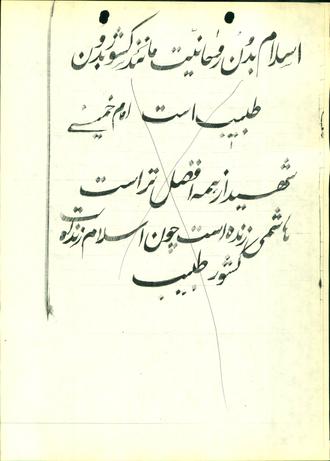 اسلام بدون روحانیت مانند کشور بدون
طبیب است امام خمینی
شهید از همه افضل تر است
هاشمی زنده است چون اسلام زنده است
کشور طبیب